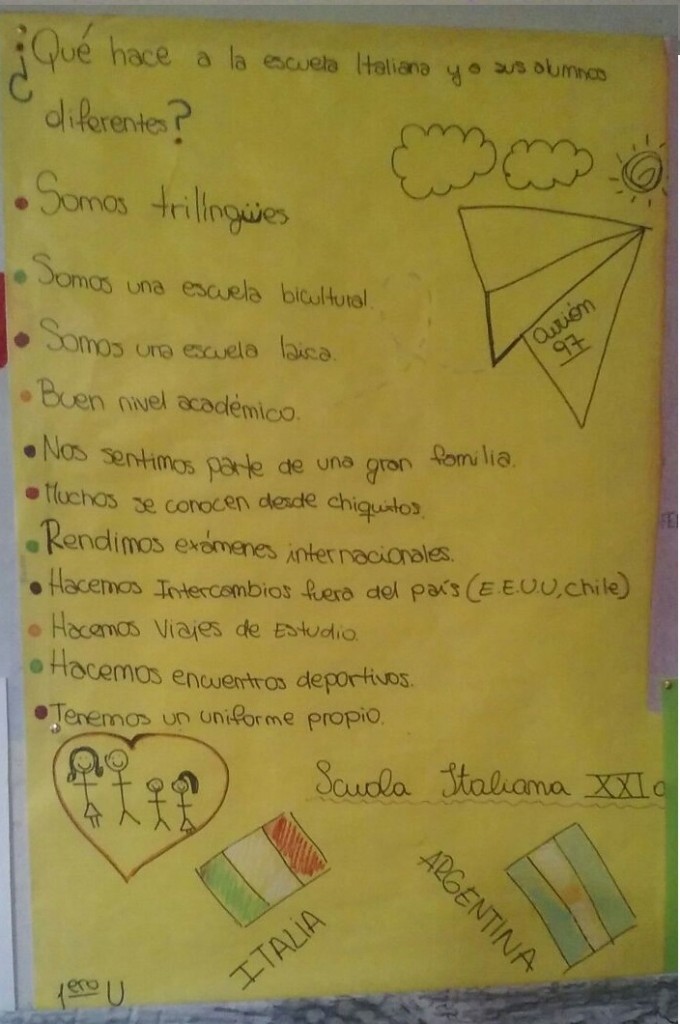 ¿Qué hace a la escuela Italiana y a sus alumnos
diferentes?
• Somos trilingües
• Somos una escuela bicultural.
• Somos una escuela laica.
• Buen nivel académico.
• Nos sentimos parte de una gran familia.
• Muchos se conocen desde chiquitos.
• Rendimos exámenes internacionales.
• Hacemos Intercambios fuera del país (E.E.U.U, Chile)
• Hacemos Viajes de Estudio.
• Hacemos encuentros deportivos.
• Tenemos un uniforme propio.
avión
97
Scuola Italiana XXI
ITALIA
ARGENTINA
1ero U